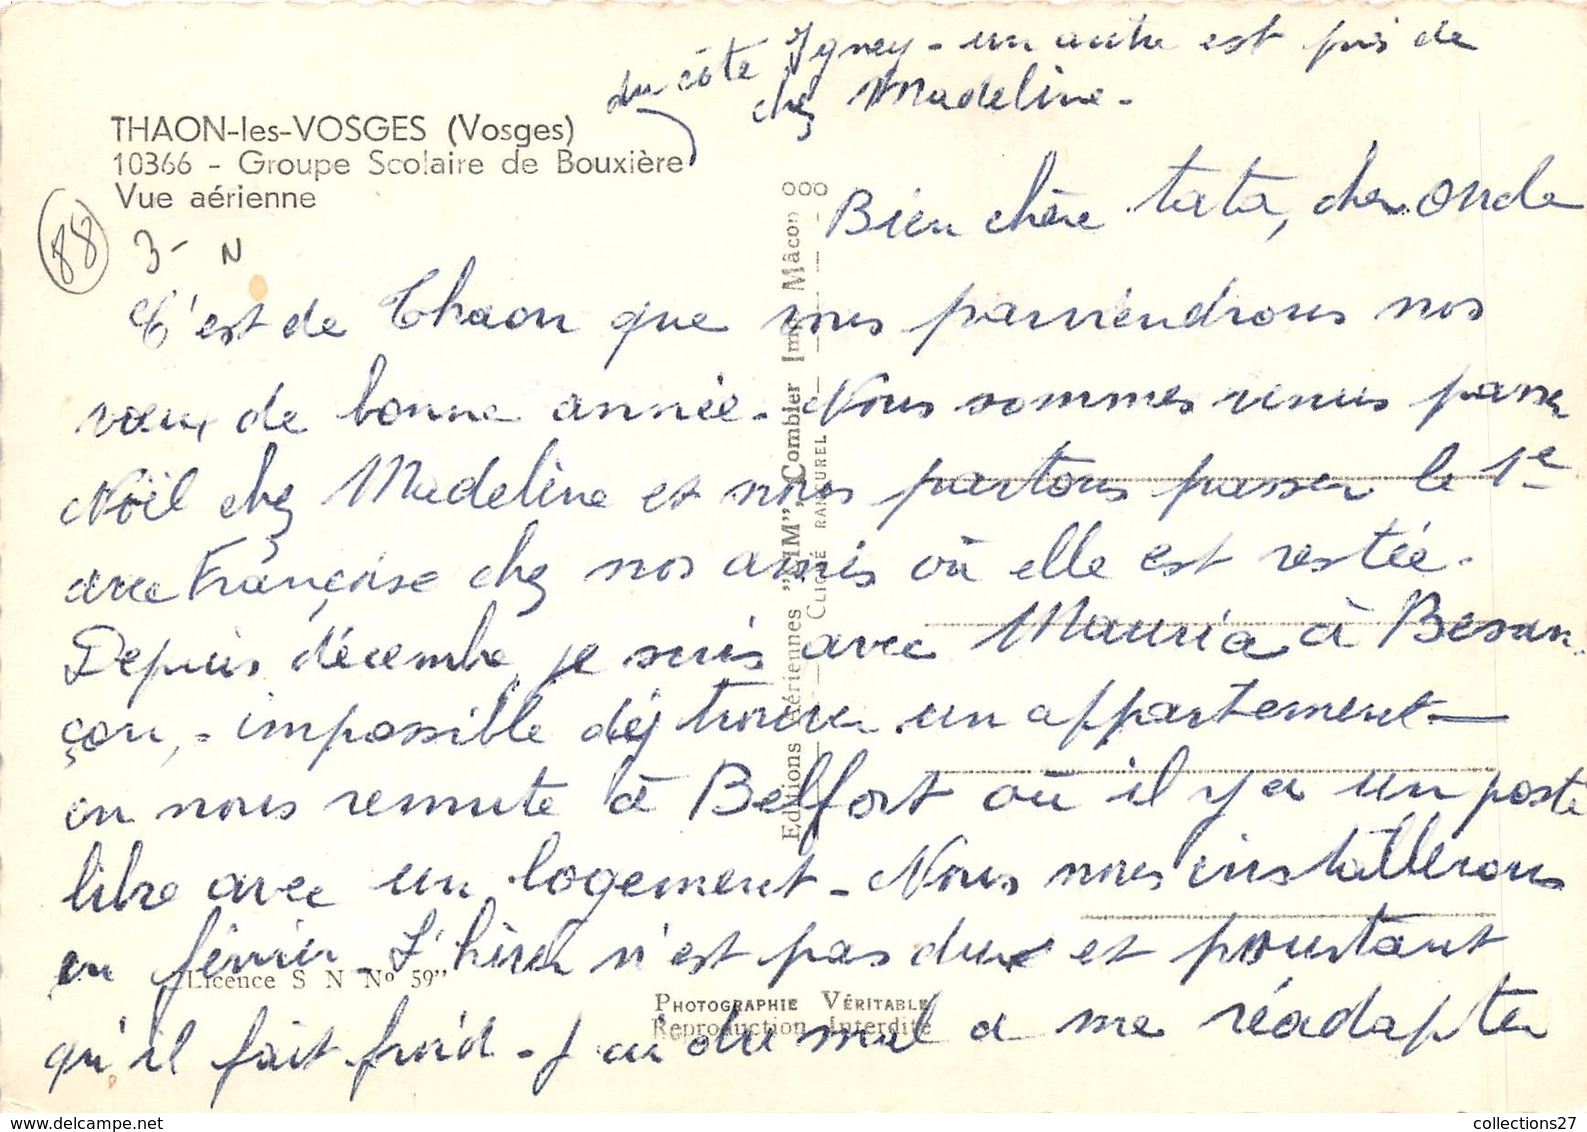 du côté Igney - un autre est près de
chez Madeline -
THAON-les-VOSGES (Vosges)
10366 - Groupe Scolaire de Bouxière
Vue aérienne
88
3- N
Bien chère tata, cher oncle
C'est de Thaon que vous parviendrons nos
voeux de bonne année - Nous sommes venus passer
Noël chez Madeline et nous partons passer le 1e
avec Françoise chez nos amis où elle est restée.
Depuis décembre je suis avec Mauria à Besan-
çon, - impossible de trouver un appartement -
on nous remute à Belfort où il y a un poste
libre avec un logement - Nous nous installerons
en février - L'hiver n'est pas dur et pourtant
qu'il fait froid - J'ai du mal a me réadapter
Editions Aériennes "CIM", Combier Imp. Mâcon
CLICHÉ RANCUREL
Licence S N No 59"
PHOTOGRAPHIE VÉRITABLE
Reproduction Interdite
collections27